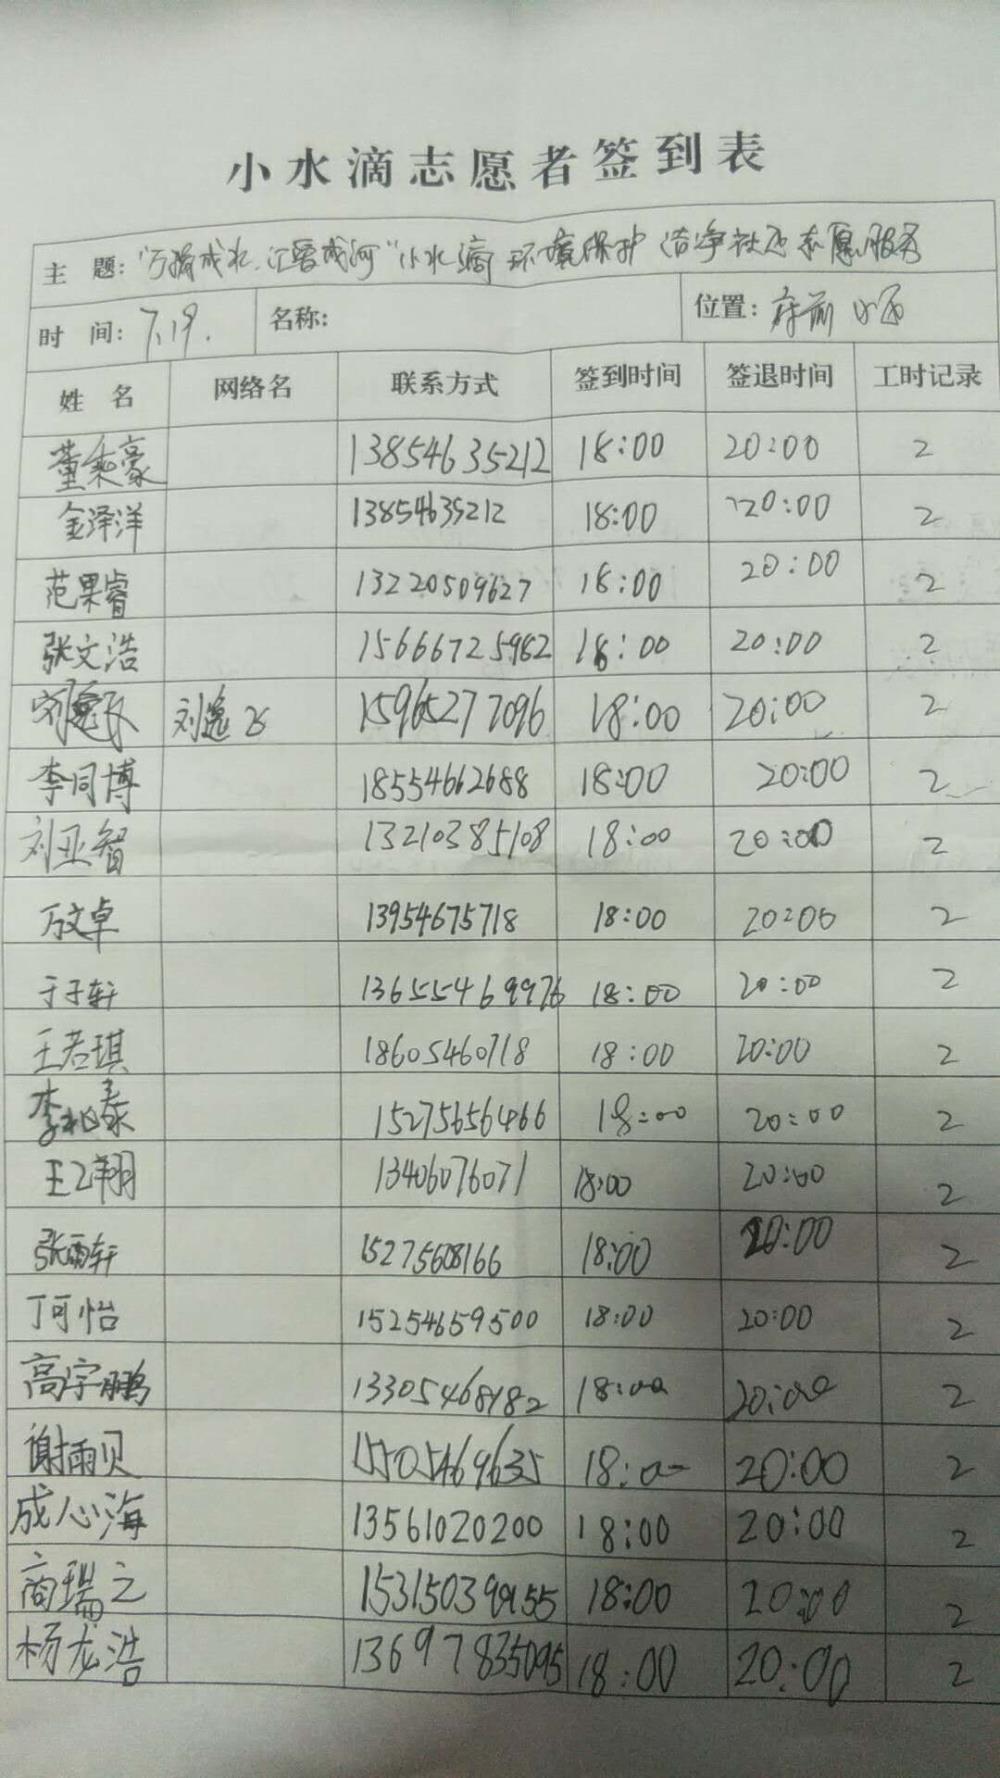 小水滴志愿者签到表
主 题：“万滴成水，汇聚成河”小水滴 环境保护 洁净社区志愿服务
时 间：7.19. 名称： 位置：府前小区
姓 名 网络名 联系方式 签到时间 签退时间 工时记录
董乘豪 13854635212 18:00 20:00 2
金泽洋 13854635212 18:00 20:00 2
范果睿 13220509627 18:00 20:00 2
张文浩 15666725982 18:00 20:00 2
刘逸飞 15965277096 18:00 20:00 2
李同博 18554662688 18:00 20:00 2
刘亚智 13210385108 18:00 20:00 2
万文卓 13954675718 18:00 20:00 2
于子轩 13655469976 18:00 20:00 2
王若琪 18605460718 18:00 20:00 2
李兆泰 15275656466 18:00 20:00 2
王乙翔 13406076071 18:00 20:00 2
张雨轩 15275608166 18:00 20:00 2
丁可怡 15254659500 18:00 20:00 2
高宇鹏 13305468182 18:00 20:00 2
谢雨贝 15505469635 18:00 20:00 2
成心海 13561020200 18:00 20:00 2
商瑞之 18:00 20:00 2
杨龙浩 13697835095 18:00 20:00 2